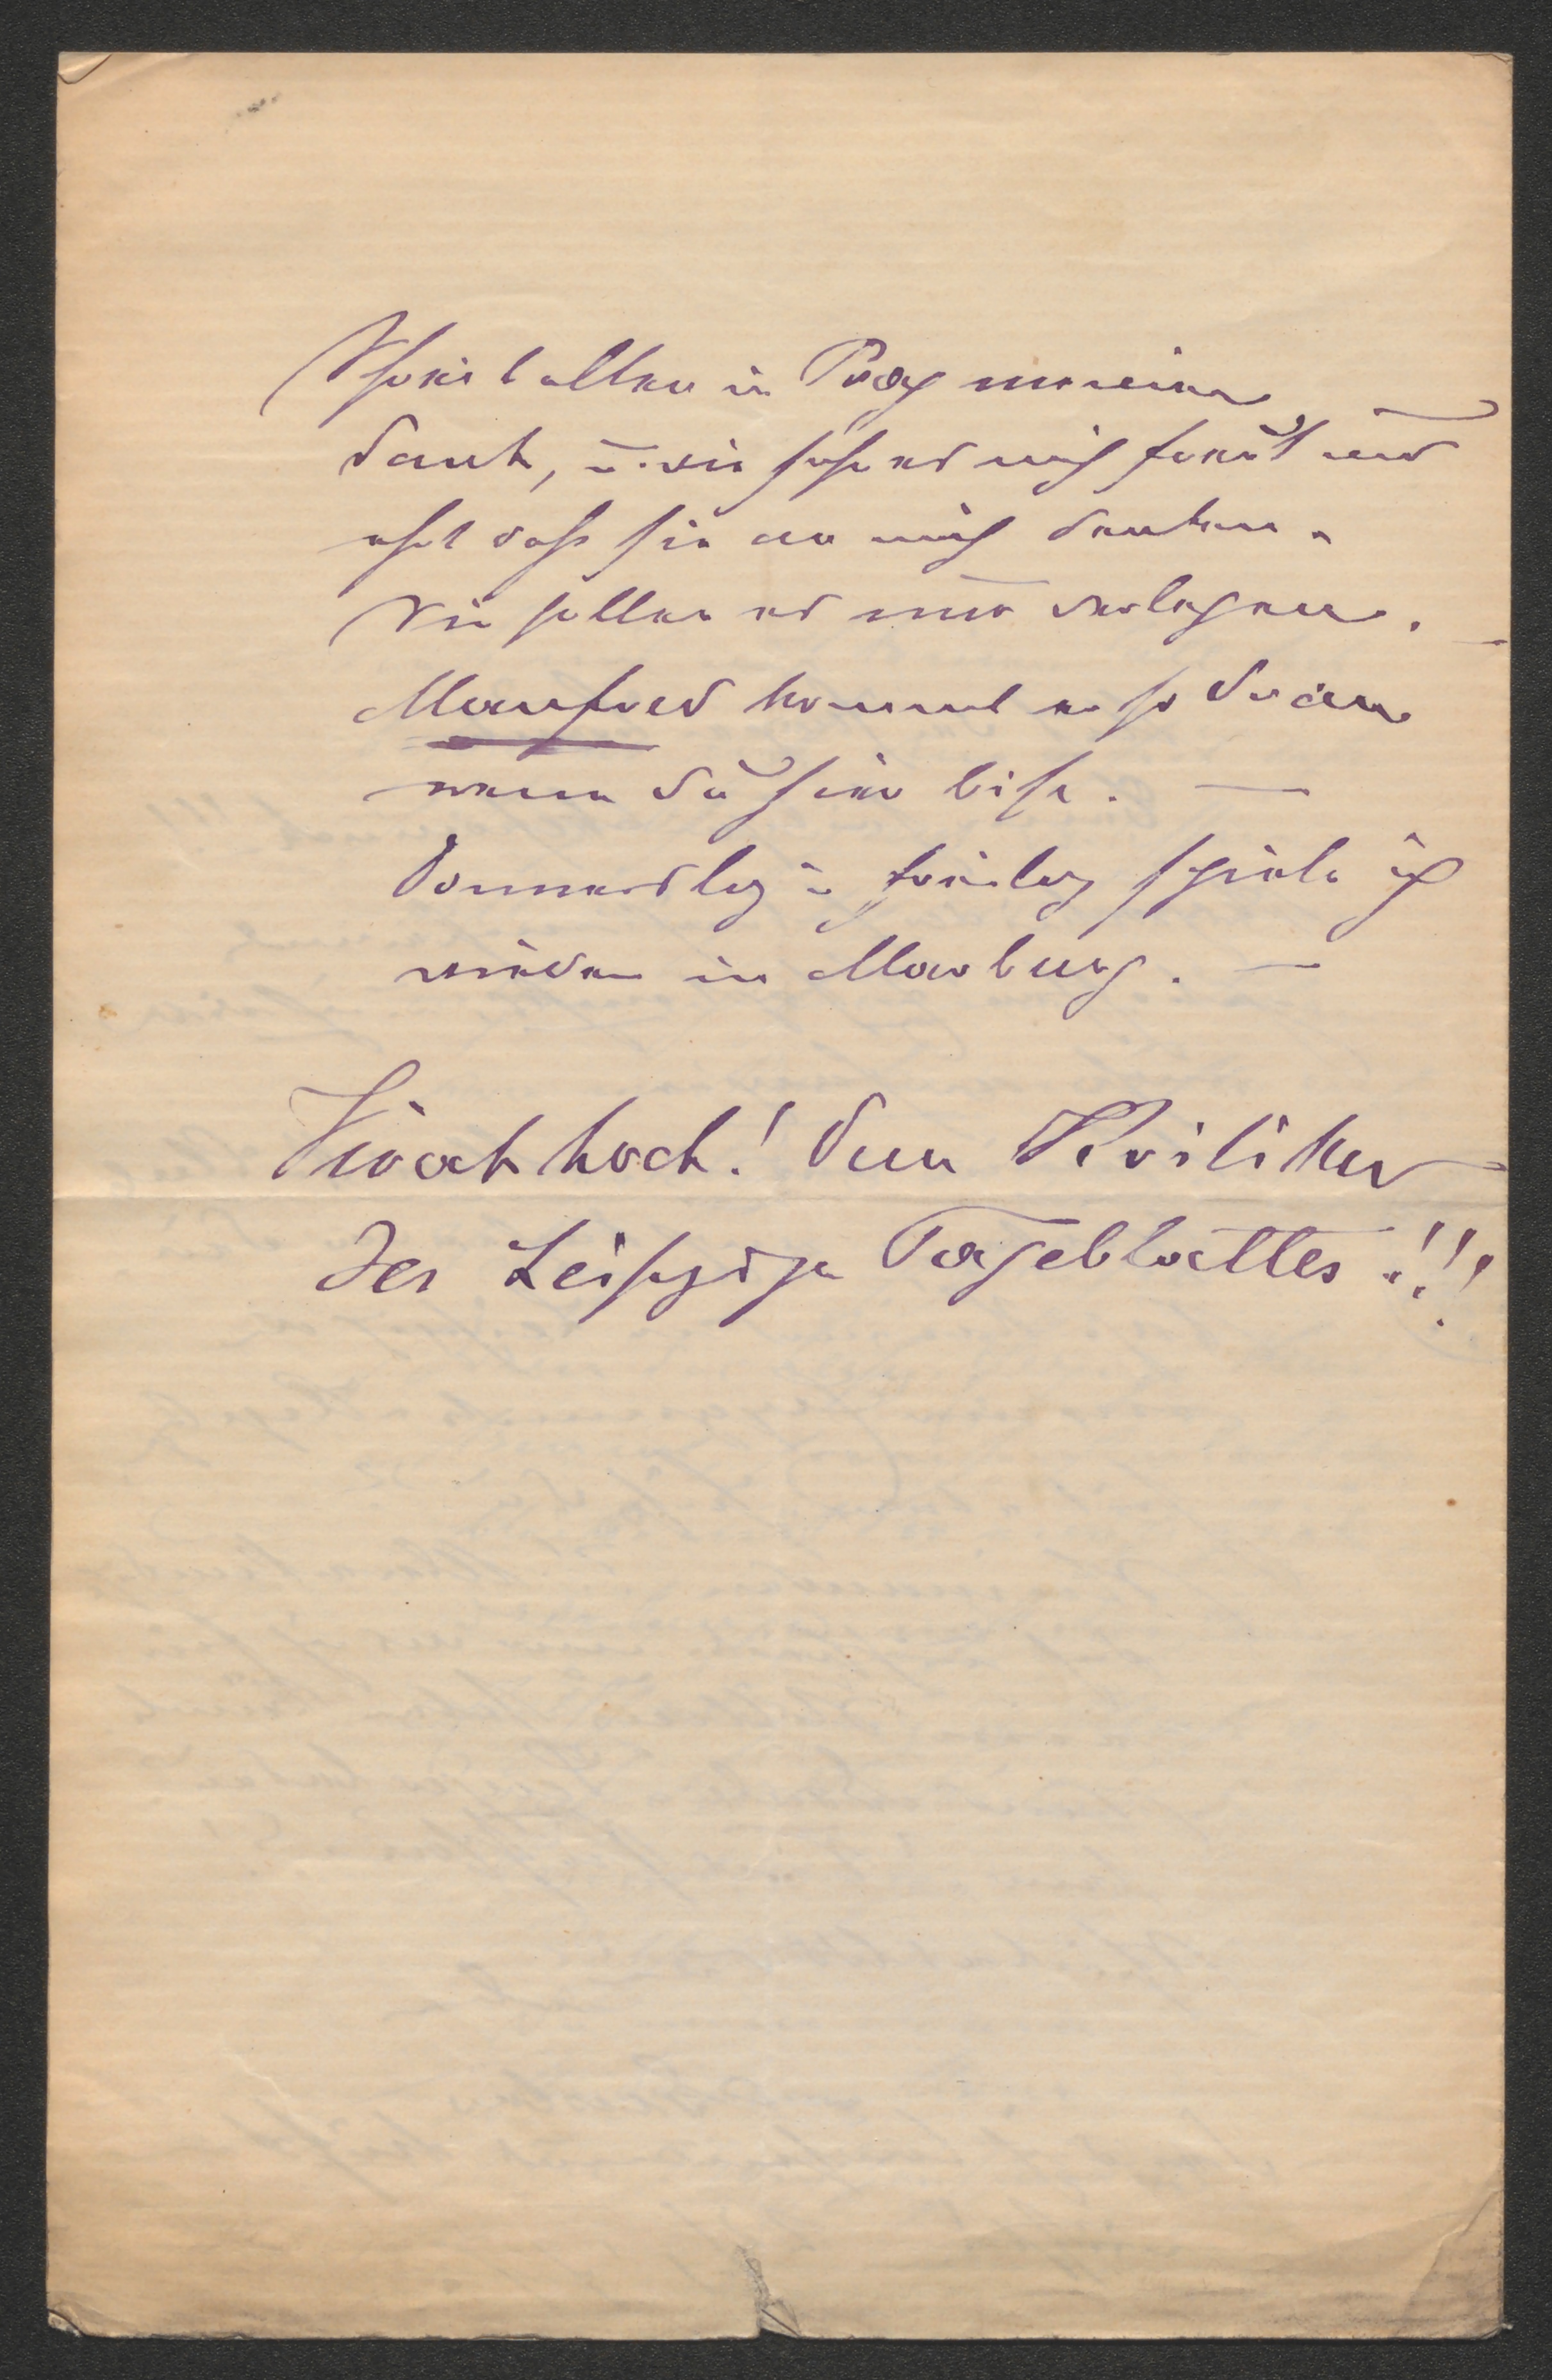 Schreibe allen in Prag meinen
Dank, u. wie sehr es mich freut und
ehrt dass sie an mich denken.
Sie sollen es nur verlegen.
Manfred kommt erst dran
wenn Du hier bist. —
Donnerstag u. Freitag spiele ich
wieder in Marburg. —
Vivat hoch! dem Kritiker
des Leipziger Tageblattes!!!